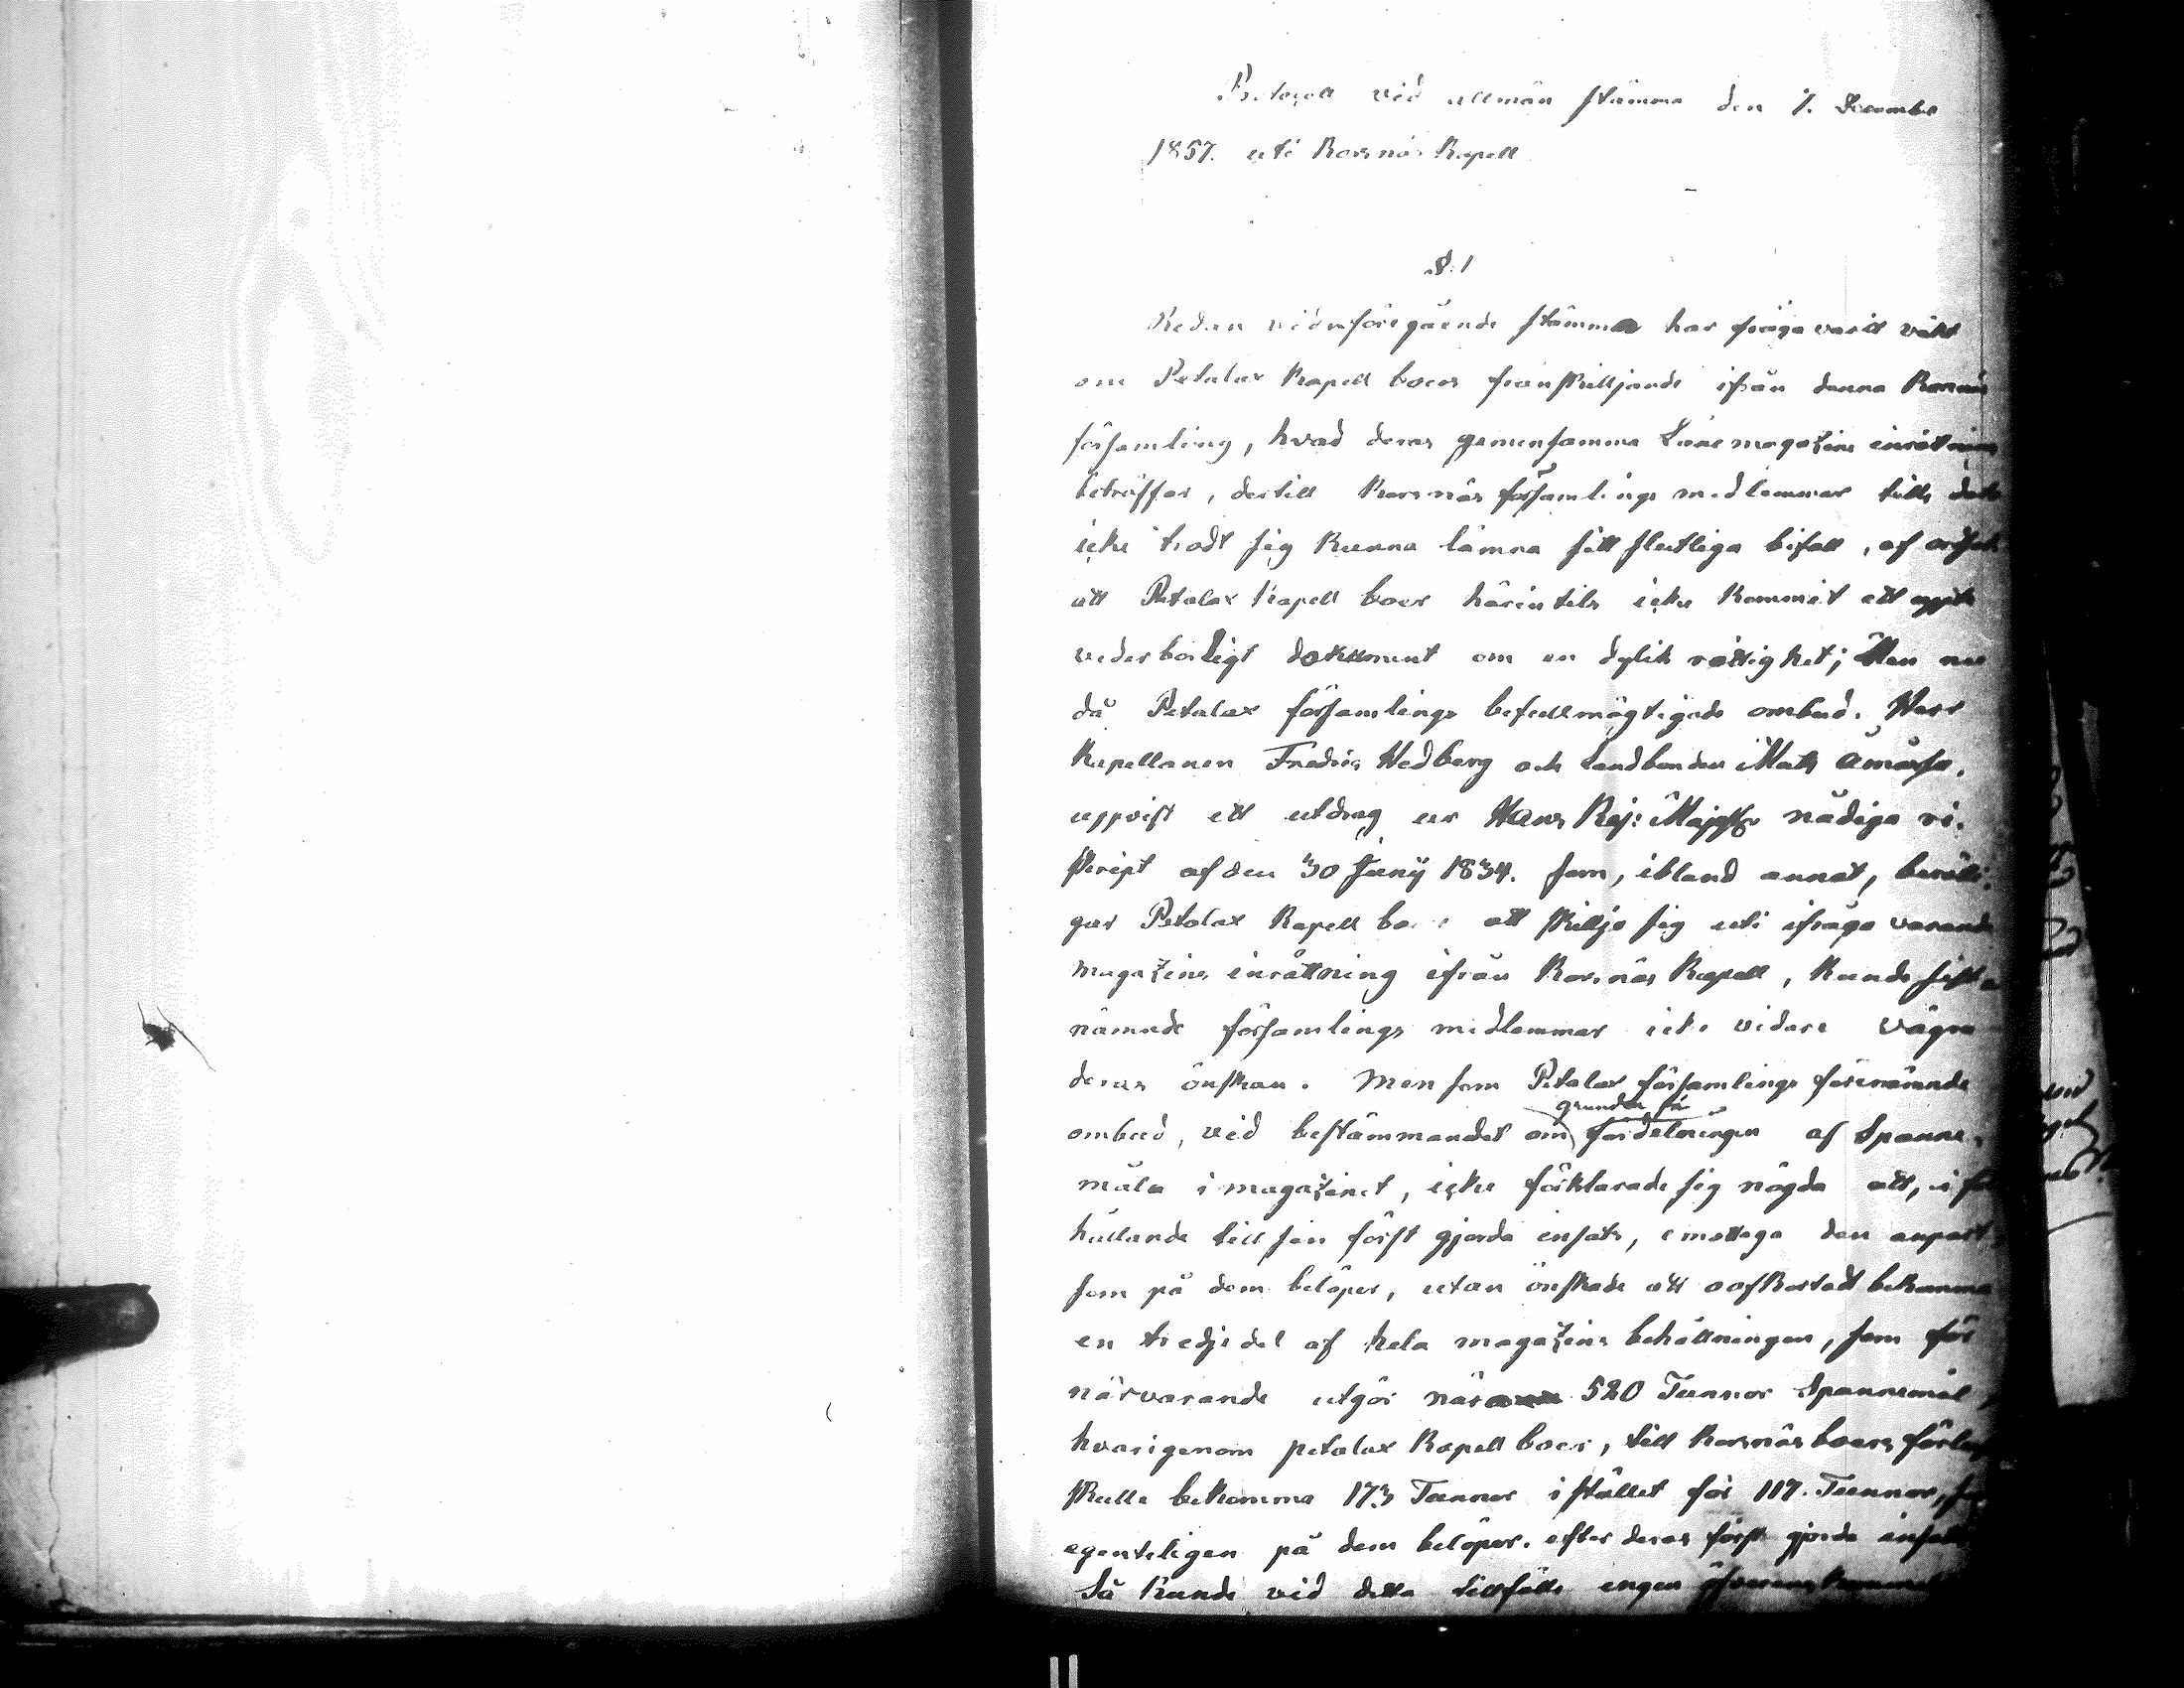 Protocoll vid allmän stämma den 7. December
1857. uti Korsnäs Kapell
§.1
Redan vid föregående stämma har fråga varit väkt
om Petalax Kapell boers franskilljande ifrån denna Korsnäs
församling, hvad deras gemensamma Lånemagazins inrättning
beträffar, dertill Korsnäs församlings medlemmar tills dato
icke trodt sig kunna lämna sitt slutliga bifall, af orsak
att Petalax Kapell boer härintils icke kommit att uppte
vederborligt dokument om en dylik rättighet; Men nu
då Petalax församlings befullmägtigade ombud. Herr
Kapellanen Fredric Hedberg och Landbonden Mats Åmossa,
uppvist ett utdrag ur Hans Kej: Majsts nådiga re-
skript af den 30 Junij 1834. som, ibland annat, berätti-
gar Petalax Kapell boer att skillja sig uti ifråga varande
magazins inrättning ifrån Korsnäs Kapell, kunde sist
nämnde församlings medlemmar icke vidare vägra
deras önskan. Men som Petalax församlings förenämnde
grunden för
ombud, vid bestämmandet om fördelningen af Spanne-
måla i magazinet, icke förklarade sig nögda att, i för
hållande till sin först gjorda insats, emottaga den anpart
som på dem belöper, utan önskade att oafkortadt bekomma
en tredjedel af hela magazins behållningen, som för
närvarande utgör nära 520 Tunnor Spannemål,
hvarigenom petalax Kapell boer, till Korsnäs boers förlust
skulle bekomma 173 Tunnor i stället för 117. Tunnor, som
egenteligen på dem belöper. efter deras först gjorda insats
Så kunde vid detta tillfälle ingen